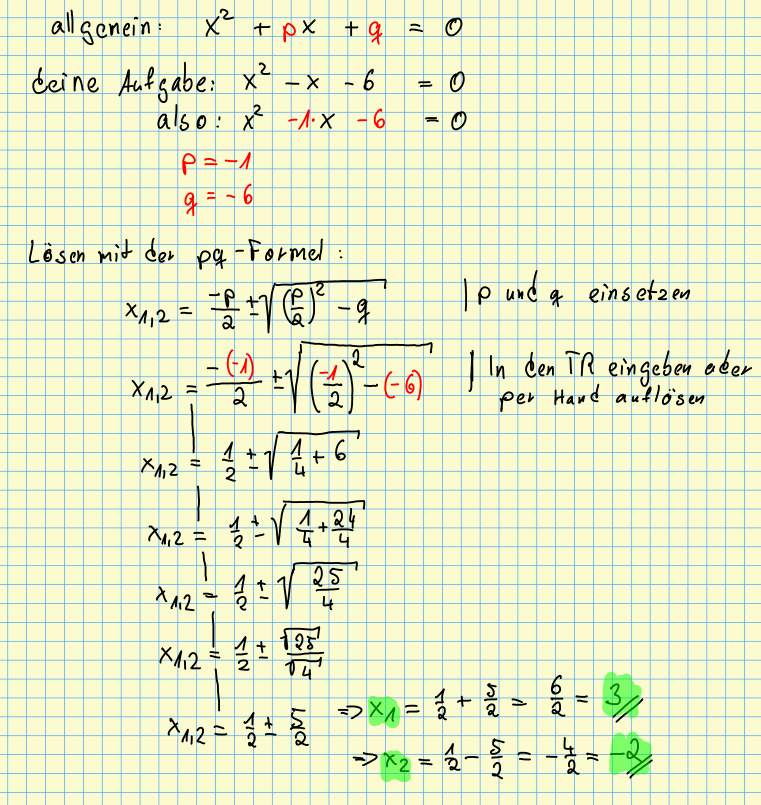 allgemein: x² + px + q = 0
deine Aufgabe: x² - x - 6 = 0
also: x² -1·x -6 = 0
p = -1
q = -6
Lösen mit der pq-Formel:
x₁,₂ = -p/2 ± √((p/2)² - q) | p und q einsetzen
x₁,₂ = -(-1)/2 ± √((-1/2)² - (-6)) | In den TR eingeben oder
per Hand auflösen
x₁,₂ = 1/2 ± √(1/4 + 6)
x₁,₂ = 1/2 ± √(1/4 + 24/4)
x₁,₂ = 1/2 ± √(25/4)
x₁,₂ = 1/2 ± √25/√4
x₁,₂ = 1/2 ± 5/2 => x₁ = 1/2 + 5/2 = 6/2 = 3
=> x₂ = 1/2 - 5/2 = -4/2 = -2